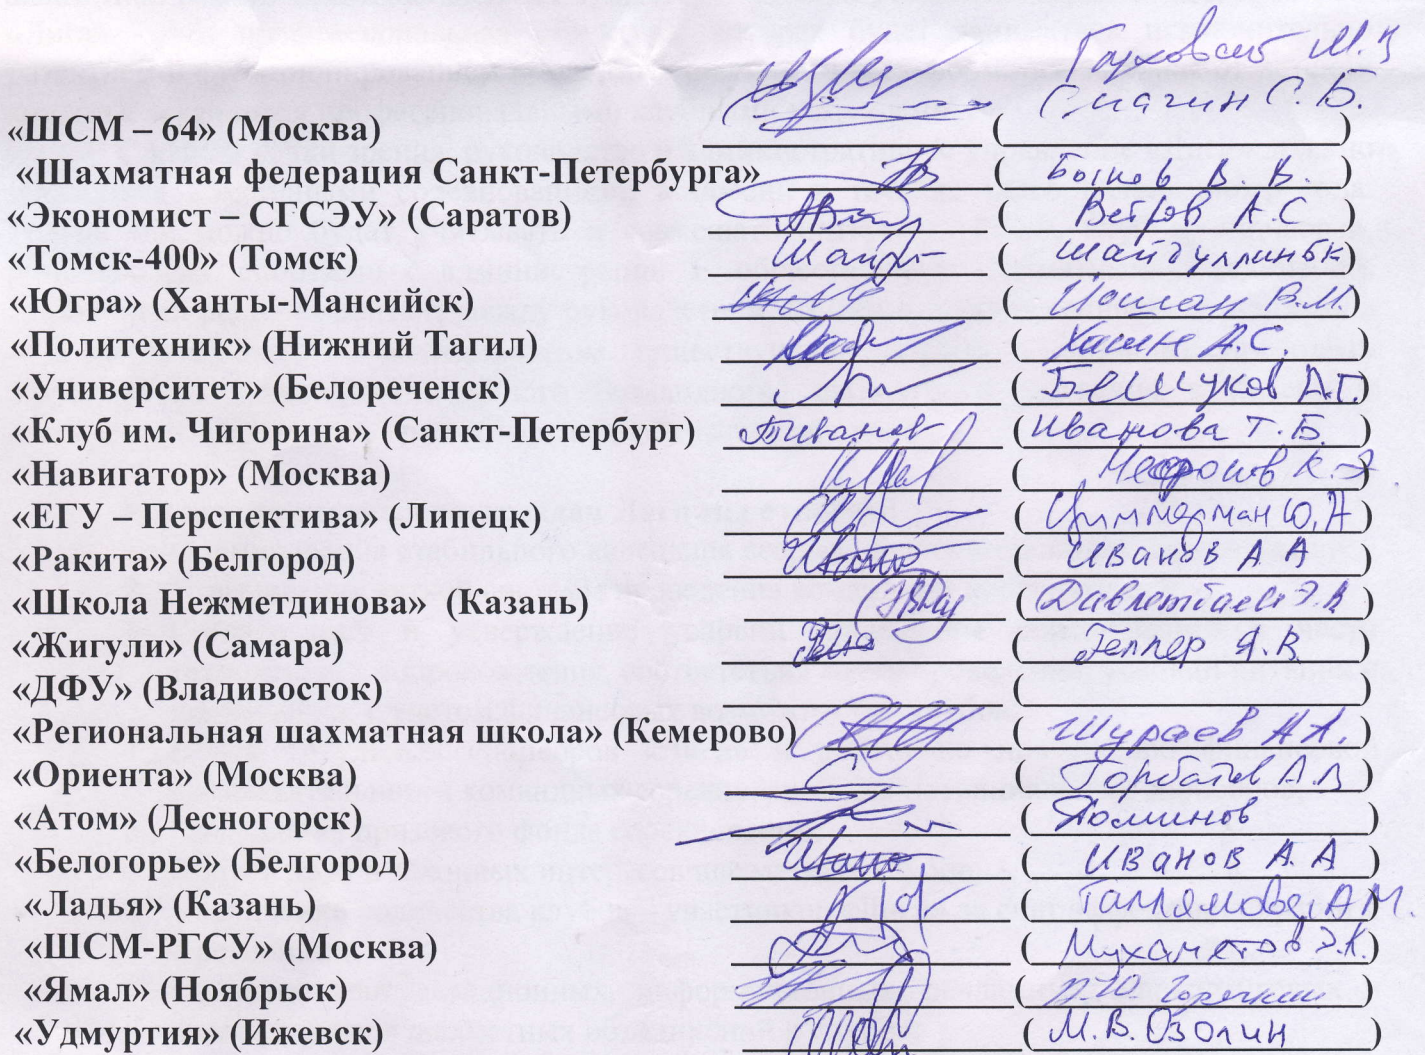 М.
Смагин С. Б.
«ШСМ – 64» (Москва) ( )
«Шахматная федерация Санкт-Петербурга» ( Быков В. В. )
«Экономист – СГСЭУ» (Саратов) ( Ветров А.С )
«Томск-400» (Томск) ( Шайдуллин )
«Югра» (Ханты-Мансийск) ( В.М. )
«Политехник» (Нижний Тагил) ( Хасин А.С. )
«Университет» (Белореченск) ( Бешуков )
«Клуб им. Чигорина» (Санкт-Петербург) ( Иванова Т. Б. )
«Навигатор» (Москва) ( )
«ЕГУ – Перспектива» (Липецк) ( Циммерман )
«Ракита» (Белгород) ( Иванов А А )
«Школа Нежметдинова» (Казань) ( )
«Жигули» (Самара) ( Геллер Я.В )
«ДФУ» (Владивосток) ( )
«Региональная шахматная школа» (Кемерово) ( Шураев А.А. )
«Ориента» (Москва) ( Горбатов А.В )
«Атом» (Десногорск) ( )
«Белогорье» (Белгород) ( Иванов А. А )
«Ладья» (Казань) ( А.М. )
«ШСМ-РГСУ» (Москва) ( Мухаметов Э.К. )
«Ямал» (Ноябрьск) ( )
«Удмуртия» (Ижевск) ( М.В. Озолин )